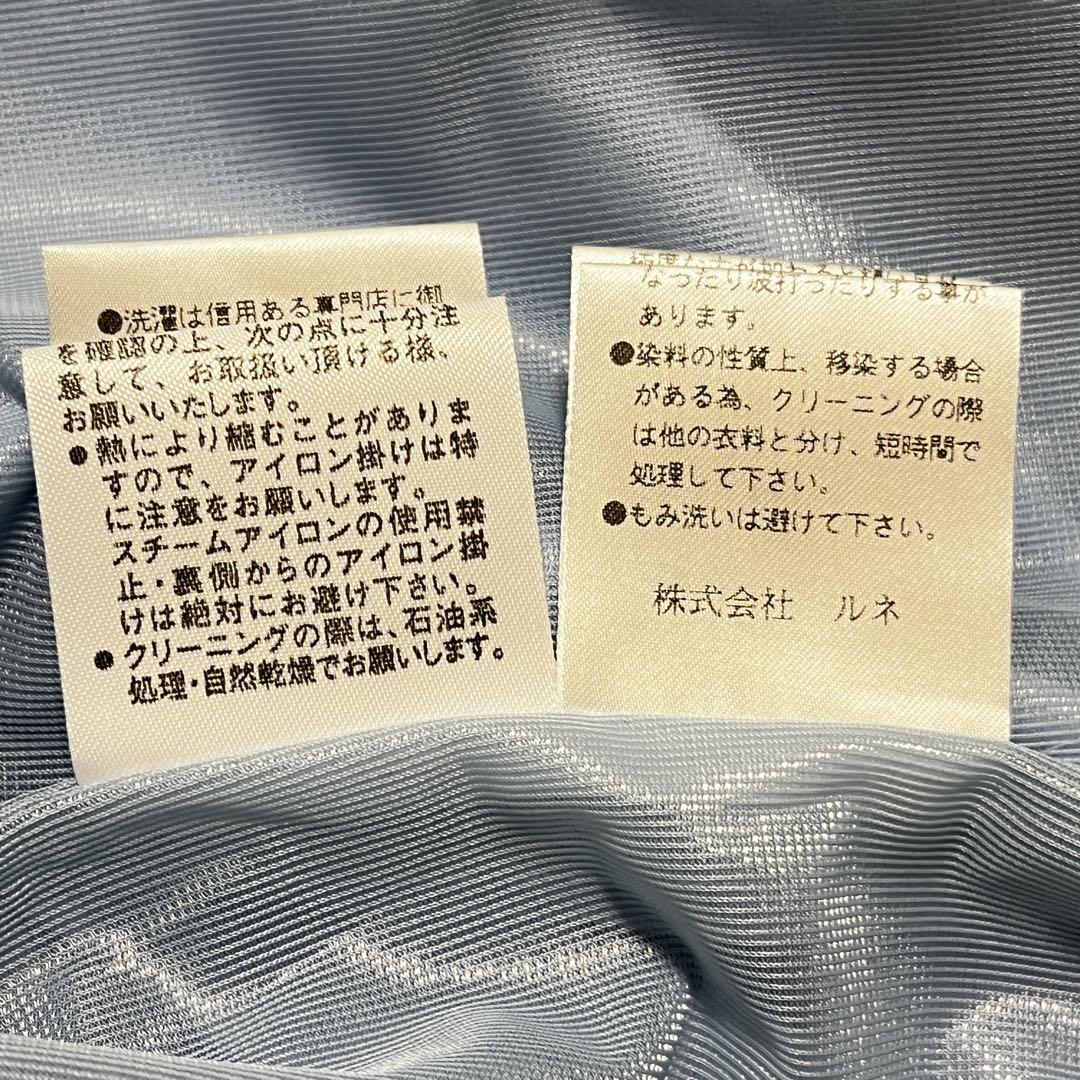 ●洗濯は信用ある専門店に御
を確認の上、次の点に十分注
意して、お取扱い頂ける様、
お願いいたします。
●熱により縮むことがありま
すので、アイロン掛けは特
に注意をお願いします。
スチームアイロンの使用禁
止・裏側からのアイロン掛
けは絶対にお避け下さい。
●クリーニングの際は、石油系
処理・自然乾燥でお願いします。
なったり波打ったりする事が
あります。
●染料の性質上、移染する場合
がある為、クリーニングの際
は他の衣料と分け、短時間で
処理して下さい。
●もみ洗いは避けて下さい。
株式会社 ルネ